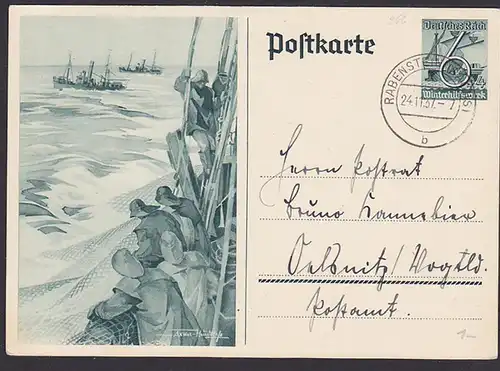 Postkarte
Deutsches Reich
6
Winterhilfswerk
24.11.37.- 7
b
Herrn Postrat
Bruno Sannebier
Oelsnitz/Vogtld.
Postamt.
1-